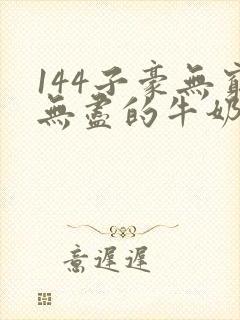 144子豪無窮
無盡的牛奶
意遲遲